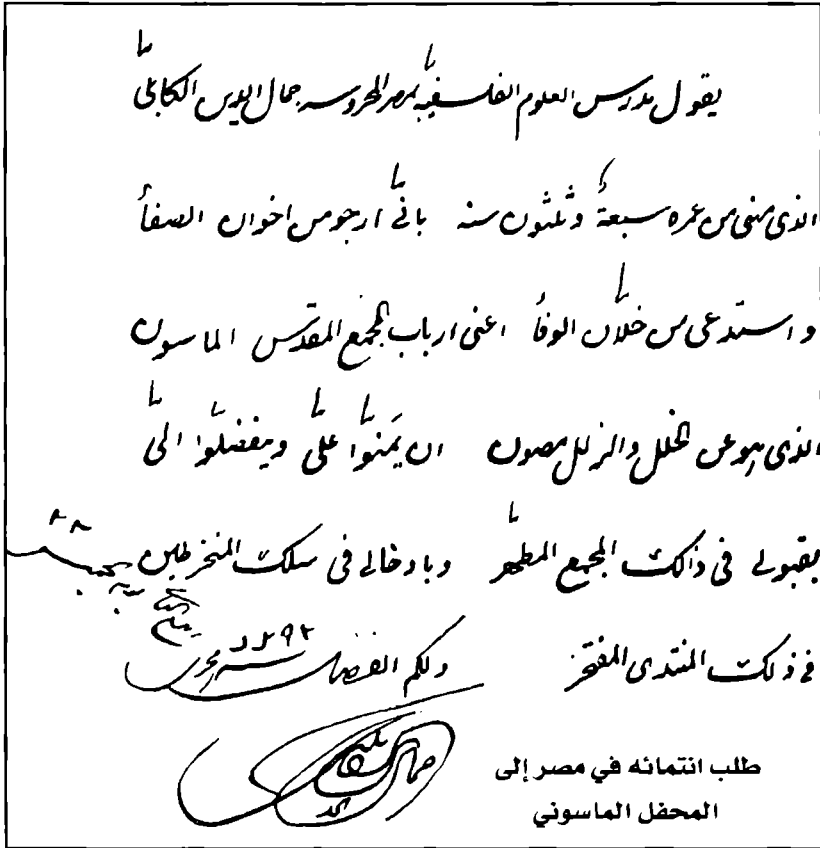 يقول مدرس العلوم الفلسفية بمصر المحروسه جمال الدين الكابلى
الذى مضى من عمره سبعة وثلثون سنه بانى ارجو من اخوان الصفأ
واستدعى من خلان الوفأ اعنى ارباب المجمع المقدس الماسون
الذى هو عن الخلل والزلل مصون ان يمنوا على ويتفضلوا الى
بقبولى فى ذالك المجمع المطهر وبادخالى فى سلك المنخرطين
فى ذلك المنتدى المفتخر ولكم الفضل
طلب انتمائه في مصر إلى
المحفل الماسوني